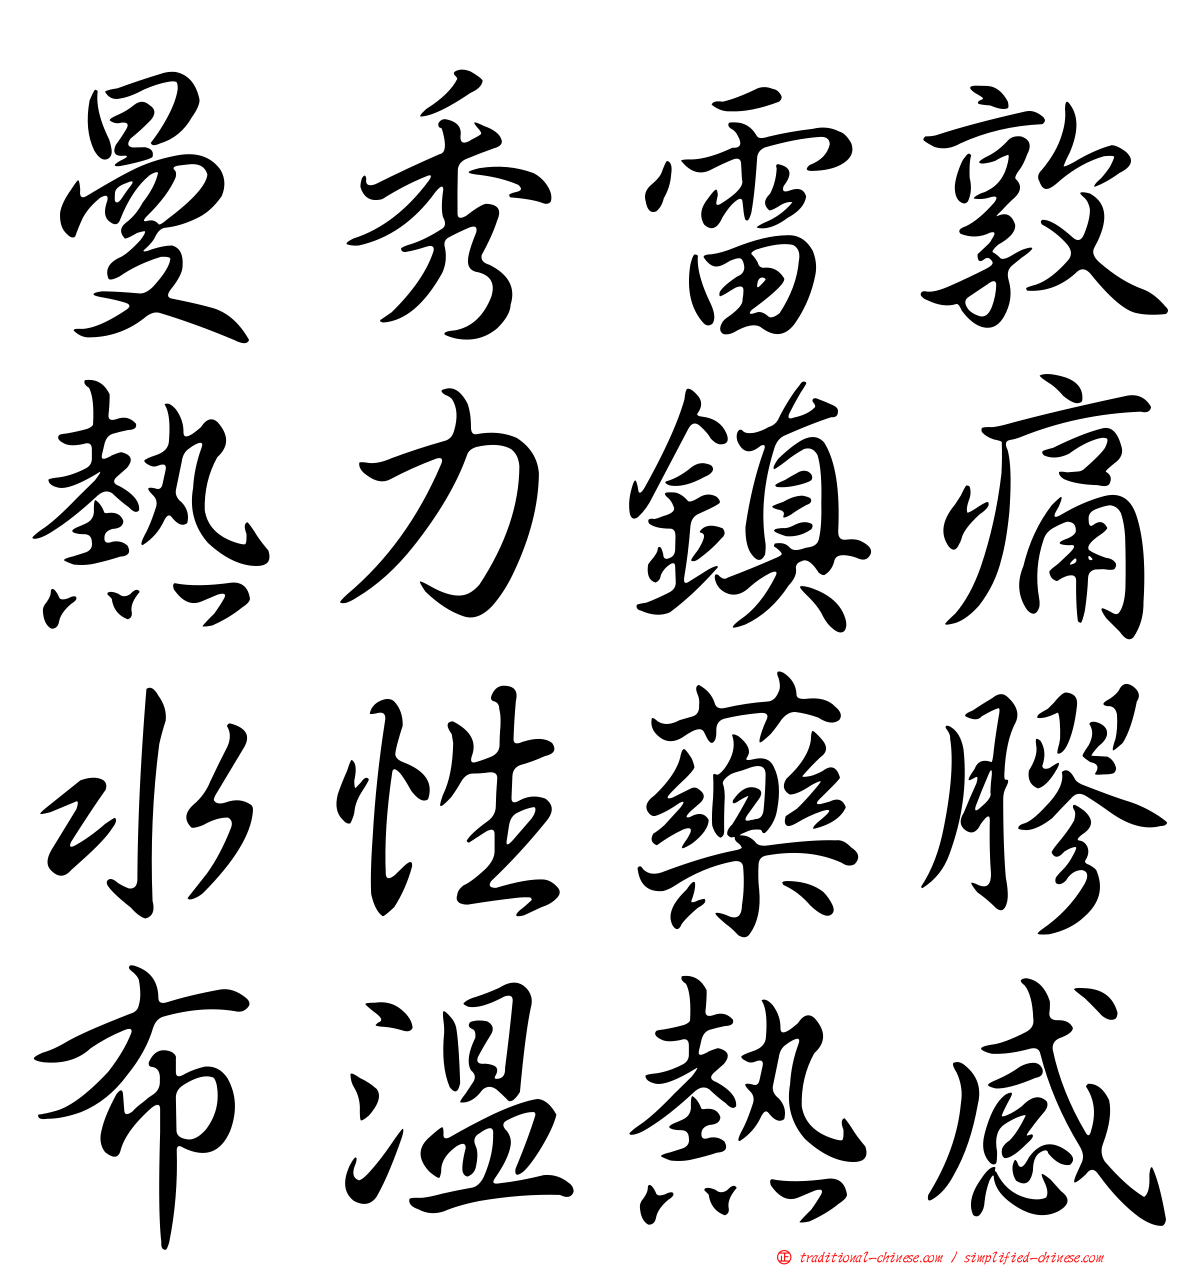 曼秀雷敦
熱力鎮痛
水性藥膠
布溫熱感
正 traditional-chinese.com / simplified-chinese.com